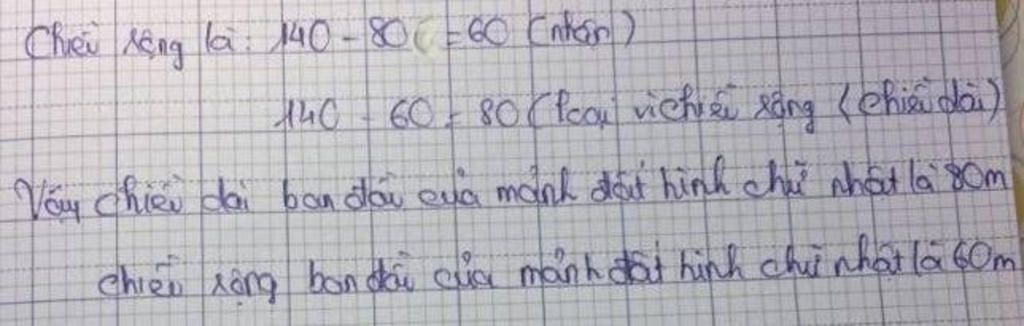 Chiều rộng là: 140 - 80 = 60 (nhận)
140 - 60 = 80 (loại vì chiều rộng < chiều dài)
Vậy chiều dài ban đầu của mảnh đất hình chữ nhật là 80m
chiều rộng ban đầu của mảnh đất hình chữ nhật là 60m